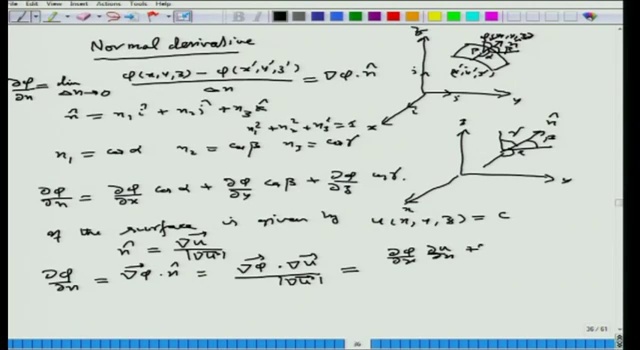 File Edit View Insert Actions Tools Help
Normal derivative
∂φ/∂n = lim Δn→0 (φ(x,y,z) − φ(x',y',z'))/Δn = ∇φ · n̂
n̂ = n₁ î + n₂ ĵ + n₃ k̂
n₁² + n₂² + n₃² = 1
n₁ = cos α n₂ = cos β n₃ = cos γ
∂φ/∂n = ∂φ/∂x cos α + ∂φ/∂y cos β + ∂φ/∂z cos γ.
of the surface is given by u(x, y, z) = c
n̂ = ∇u/|∇u|
∂φ/∂n = ∇φ · n̂ = (∇φ · ∇u)/|∇u| = ∂φ/∂x ∂u/∂x +
z
φ(x,y,z)
(x',y',z')
y
x
z
n̂
γ
β
α
y
x
26 / 61
36